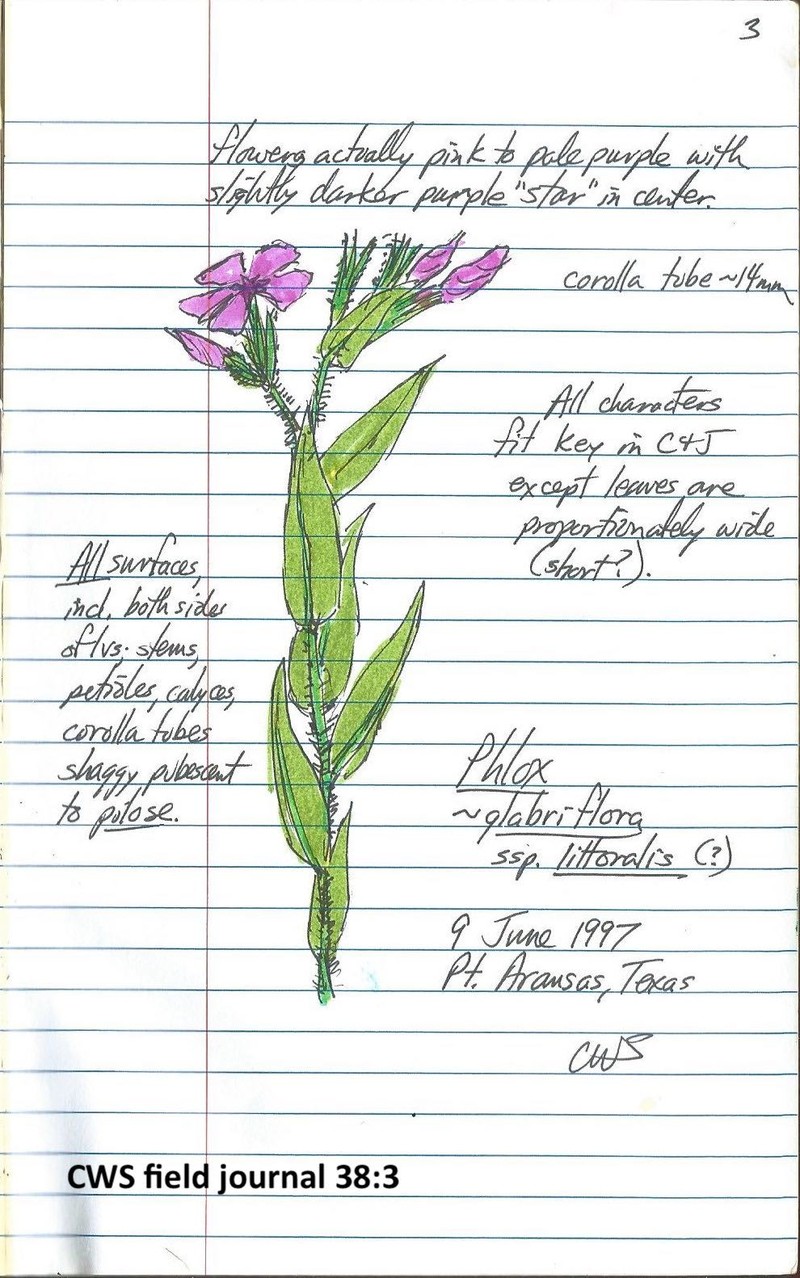 3
flowers actually pink to pale purple with
slightly darker purple "star" in center.
corolla tube ~14mm
All characters
fit key in C&J
except leaves are
proportionately wide
(short?).
All surfaces,
incl. both sides
of lvs. stems,
petioles, calyces,
corolla tubes
shaggy pubescent
to pilose.
Phlox
~glabriflora
ssp. littoralis (?)
9 June 1997
Pt. Aransas, Texas
CWS
CWS field journal 38:3